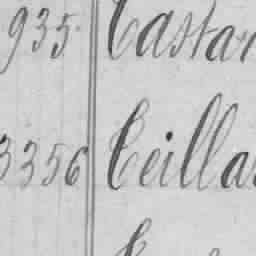 935 Castar
3356 Ceillas